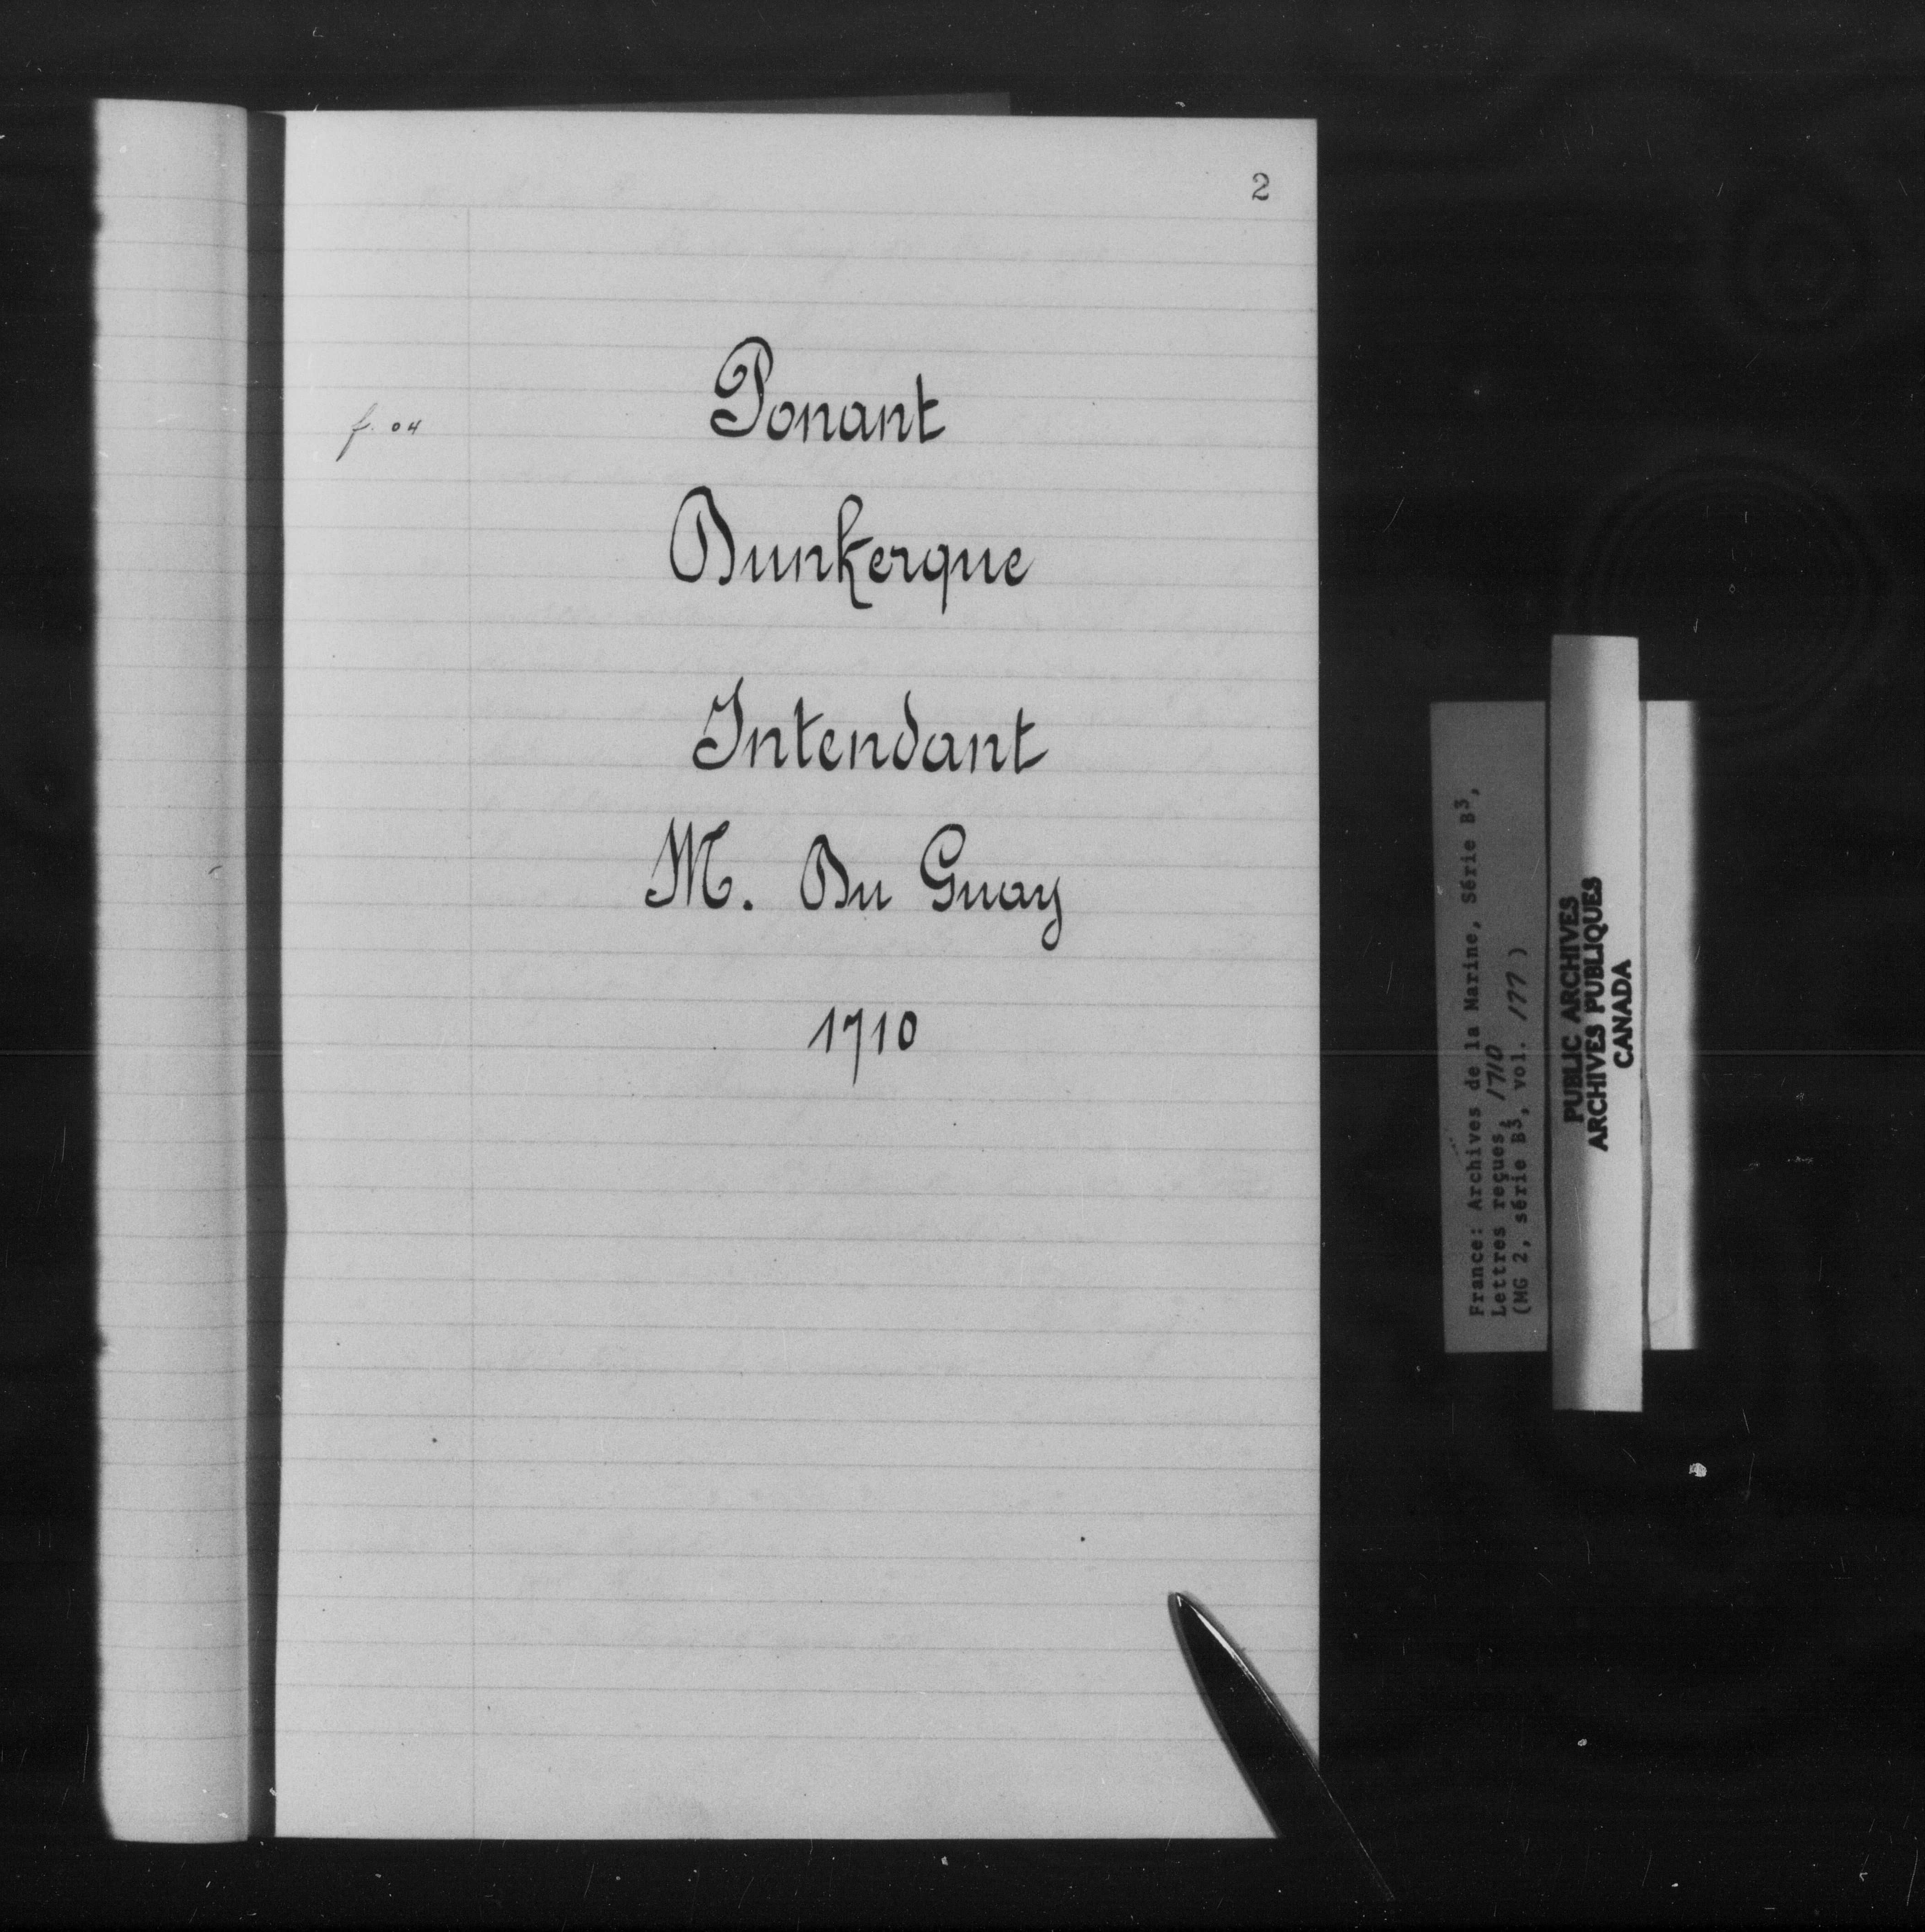 2
f. 04
Ponant
Dunkerque
Intendant
M. Du Guay
1710
France: Archives de la Marine, Série B3,
Lettres reçues, 1710
(MG 2, série B3, vol. 177)
PUBLIC ARCHIVES
ARCHIVES PUBLIQUES
CANADA